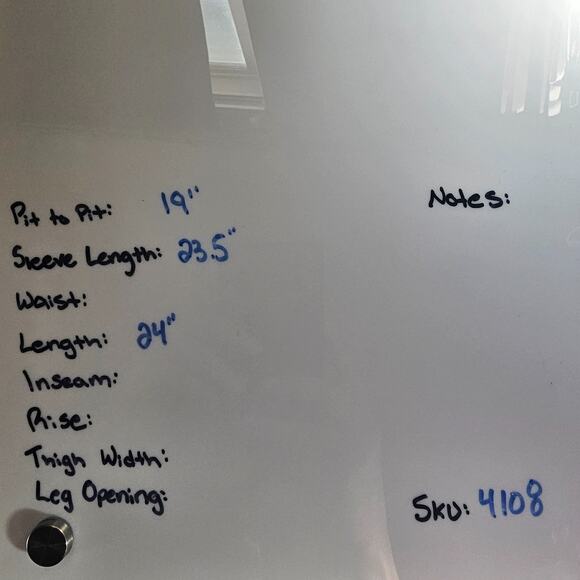 Pit to Pit: 19"
Sleeve Length: 23.5"
Waist:
Length: 24"
Inseam:
Rise:
Thigh Width:
Leg Opening:
Notes:
SKU: 4108